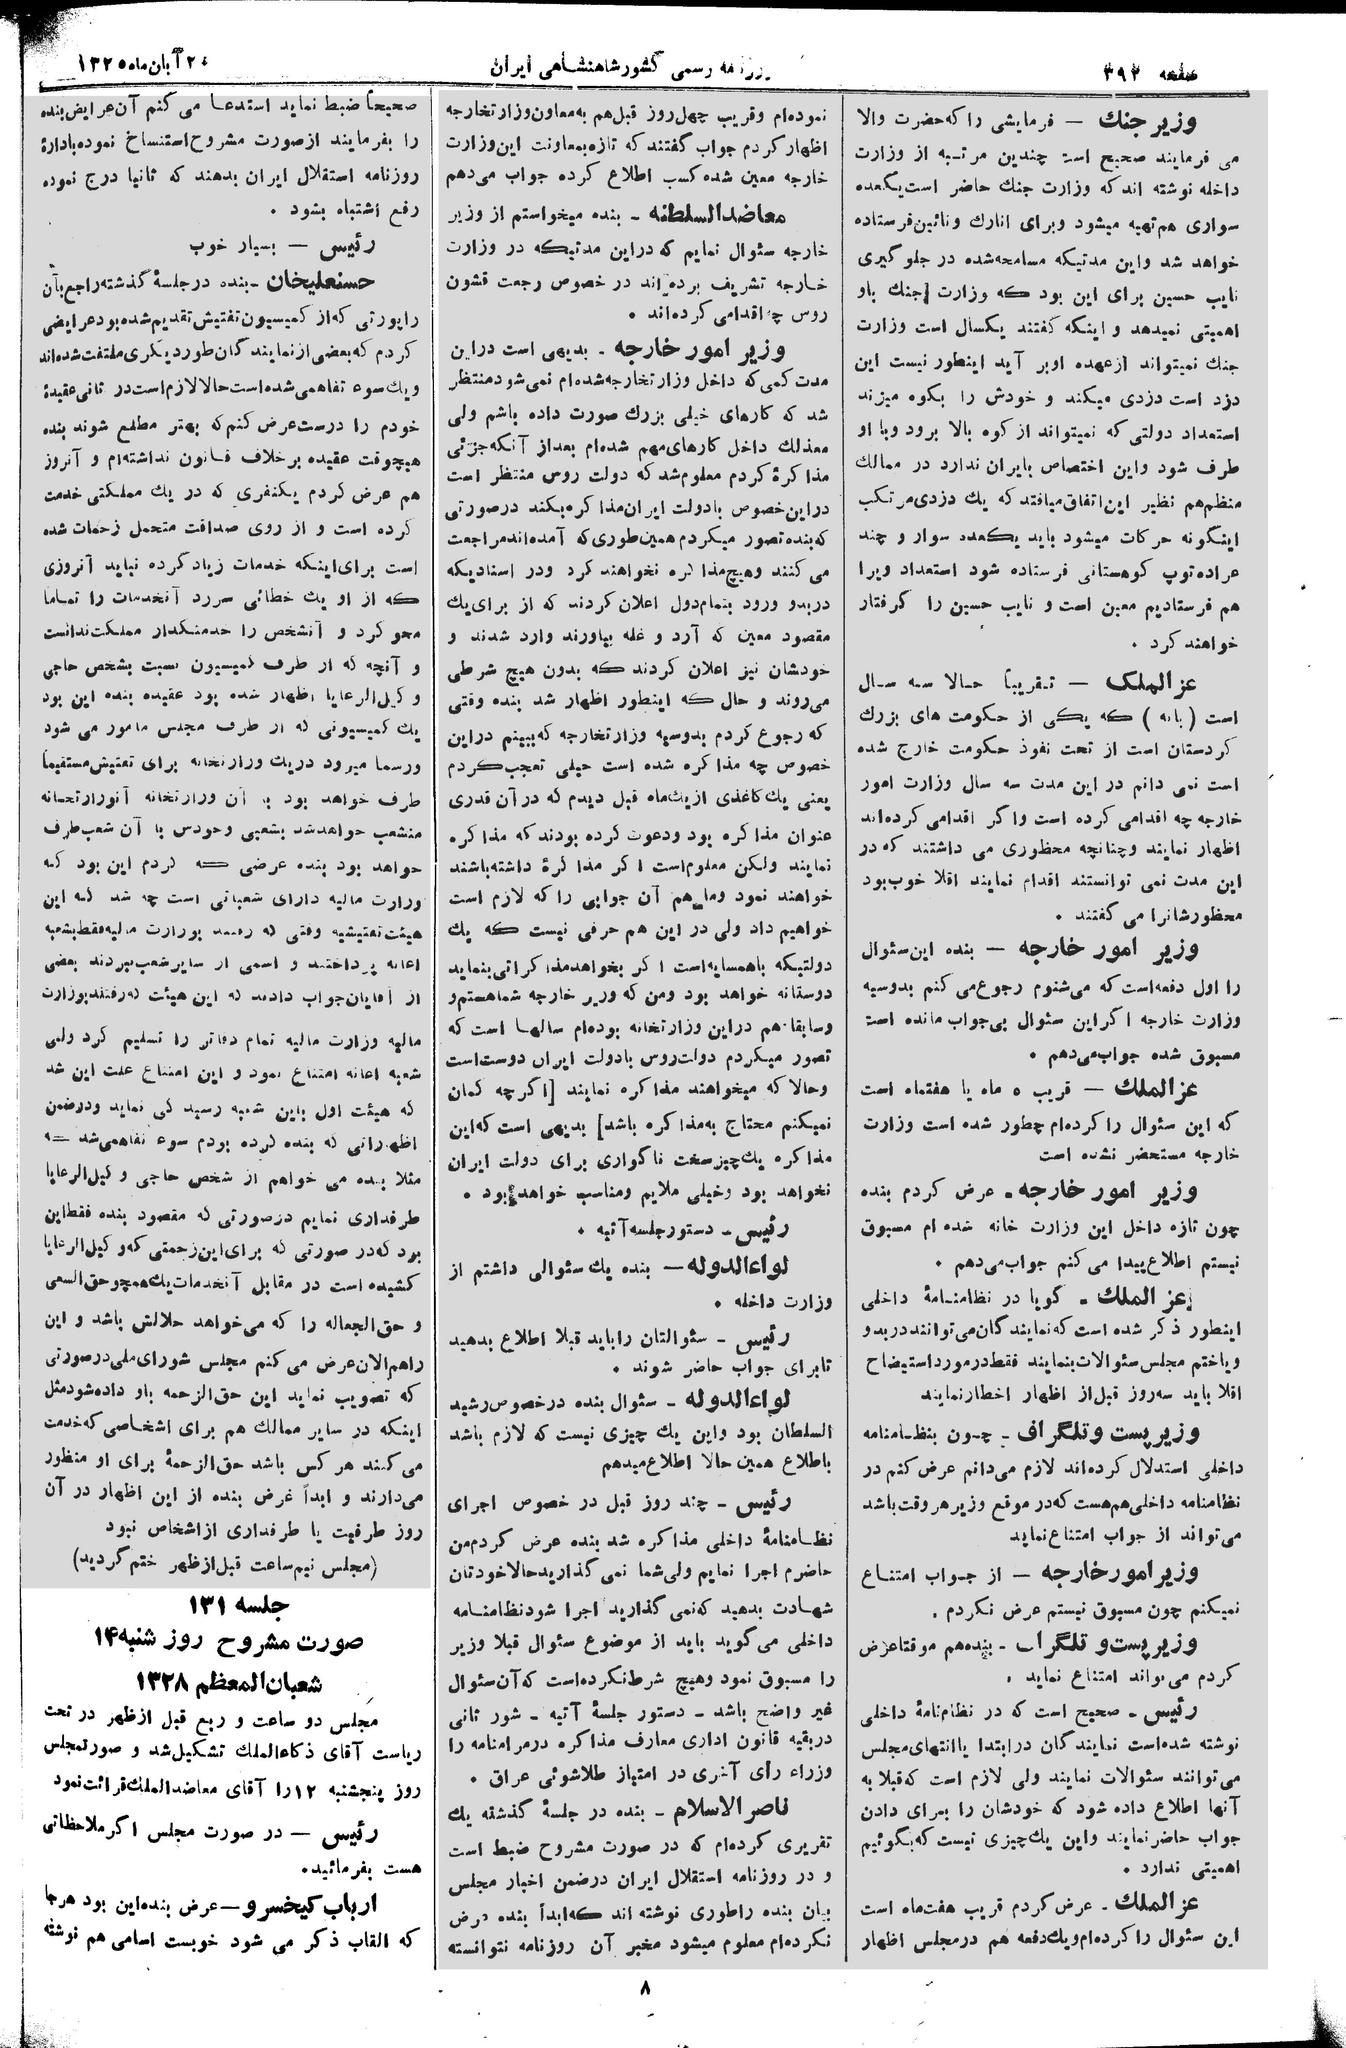 صفحه ۳۹۲
روزنامه رسمی کشور شاهنشاهی ایران
آبان ماه ۱۳۲۵
وزیر جنك — فرمایشی را که حضرت والا
می فرمایند صحیح است چندین مرتبه از وزارت
داخله نوشته اند که وزارت جنك حاضر است یکعده
سواری هم تهیه میشود و برای انارك و نائین فرستاده
خواهد شد و این مدتیکه مسامحه شده در جلوگیری
نایب حسین برای این بود که وزارت جنك باو
اهمیتی نمیدهد و اینکه گفتند یکسال است وزارت
جنك نمیتواند از عهده او بر آید اینطور نیست این
دزد است دزدی میکند و خودش را بکوه میزند
استعداد دولتی که نمیتواند از کوه بالا برود و با او
طرف شود و این اختصاص بایران ندارد در ممالك
منظم هم نظیر این اتفاق میافتد که یك دزدی مرتکب
اینگونه حرکات میشود باید یکعده سوار و چند
عراده توپ کوهستانی فرستاده شود استعداد ویرا
هم فرستادیم معین است و نایب حسین را گرفتار
خواهند کرد .
عز الملک — تقریباً حالا سه سال
است (بانه) که یکی از حکومت های بزرك
کردستان است از تحت نفوذ حکومت خارج شده
است نمی دانم در این مدت سه سال وزارت امور
خارجه چه اقدامی کرده است و اگر اقدامی کرده اند
اظهار نمایند و چنانچه محظوری می داشتند که در
این مدت نمی توانستند اقدام نمایند اقلا خوب بود
محظورشانرا می گفتند .
وزیر امور خارجه — بنده این سئوال
را اول دفعه است که می شنوم رجوع می کنم بدوسیه
وزارت خارجه اگر این سئوال بی جواب مانده است
مسبوق شده جواب می دهم .
عز الملك — قریب ۵ ماه یا هفت ماه است
که این سئوال را کرده ام چطور شده است وزارت
خارجه مستحضر نشده است
وزیر امور خارجه - عرض کردم بنده
چون تازه داخل این وزارت خانه شده ام مسبوق
نیستم اطلاع پیدا می کنم جواب می دهم .
عز الملك - گویا در نظامنامهٔ داخلی
اینطور ذکر شده است که نمایندگان می توانند در بدو
و یا ختم مجلس سئوالات بنمایند فقط در مورد استیضاح
اقلا باید سه روز قبل از اظهار اخطار نمایند
وزیر پست و تلگراف - چون بنظامنامه
داخلی استدلال کرده اند لازم می دانم عرض کنم در
نظامنامه داخلی هم هست که در موقع وزیر هر وقت باشد
می تواند از جواب امتناع نماید
وزیر امور خارجه — از جواب امتناع
نمیکنم چون مسبوق نیستم عرض نکردم .
وزیر پست و تلگراف - بنده هم موقتا عرض
کردم می تواند امتناع نماید .
رئیس - صحیح است که در نظامنامهٔ داخلی
نوشته شده است نمایندگان در ابتدا یا انتهای مجلس
می توانند سئوالات نمایند ولی لازم است که قبلا به
آنها اطلاع داده شود که خودشان را برای دادن
جواب حاضر نمایند و این یك چیزی نیست که بگوئیم
اهمیتی ندارد .
عز الملك - عرض کردم قریب هفت ماه است
این سئوال را کرده ام و یك دفعه هم در مجلس اظهار
نموده ام و قریب چهل روز قبل هم به معاون وزارتخارجه
اظهار کردم جواب گفتند که تازه بمعاونت این وزارت
خارجه معین شده کسب اطلاع کرده جواب می دهم
معاضد السلطنه - بنده میخواستم از وزیر
خارجه سئوال نمایم که در این مدتیکه در وزارت
خارجه تشریف برده اند در خصوص رجعت قشون
روس چه اقدامی کرده اند .
وزیر امور خارجه - بدیهی است در این
مدت کمی که داخل وزارتخارجه شده ام نمی شود منتظر
شد که کارهای خیلی بزرك صورت داده باشم ولی
معذلك داخل کارهای مهم شده ام بعد از آنکه جزئی
مذاکرهٔ کردم معلوم شد که دولت روس منتظر است
در این خصوص با دولت ایران مذاکره بکند در صورتی
که بنده تصور میکردم همین طوری که آمده اند مراجعت
می کنند و هیچ مذاکره نخواهند کرد و در اسنادیکه
در بدو ورود بتمام دول اعلان کردند که از برای یك
مقصود معین که آرد و غله بیاورند وارد شدند و
خودشان نیز اعلان کردند که بدون هیچ شرطی
می روند و حال که اینطور اظهار شد بنده وقتی
که رجوع کردم بدوسیه وزارتخارجه که ببینم در این
خصوص چه مذاکره شده است خیلی تعجب کردم
یعنی یك کاغذی از یك ماه قبل دیدم که در آن قدری
عنوان مذاکره بود و دعوت کرده بودند که مذاکره
نمایند ولکن معلوم است اگر مذاکرهٔ داشته باشند
خواهند نمود و ما هم آن جوابی را که لازم است
خواهیم داد ولی در این هم حرفی نیست که یك
دولتیکه با همسایه است اگر بخواهد مذاکراتی بنماید
دوستانه خواهد بود و من که وزیر خارجه شما هستم و
و سابقا هم در این وزارتخانه بوده ام سالها است که
تصور میکردم دولت روس با دولت ایران دوست است
و حالا که میخواهند مذاکره نمایند [اگرچه گمان
نمیکنم محتاج به مذاکره باشد] بدیهی است که این
مذاکره یك چیز سخت ناگواری برای دولت ایران
نخواهد بود و خیلی ملایم و مناسب خواهد بود .
رئیس - دستور جلسه آتیه .
لواء الدوله — بنده یك سئوالی داشتم از
وزارت داخله .
رئیس - سئوالتان را باید قبلا اطلاع بدهید
تا برای جواب حاضر شوند .
لواء الدوله - سئوال بنده در خصوص رشید
السلطان بود و این یك چیزی نیست که لازم باشد
با اطلاع همین حالا اطلاع میدهم
رئیس - چند روز قبل در خصوص اجرای
نظامنامهٔ داخلی مذاکره شد بنده عرض کردم من
حاضرم اجرا نمایم ولی شما نمی گذارید حالا خودتان
شهادت بدهید که نمی گذارید اجرا شود نظامنامه
داخلی می گوید باید از موضوع سئوال قبلا وزیر
را مسبوق نمود و هیچ شرط نکرده است که آن سئوال
غیر واضح باشد - دستور جلسهٔ آتیه - شور ثانی
در بقیه قانون اداری معارف مذاکره در مرامنامه را
وزراء رأی آخری در امتیاز طلاشوئی عراق .
ناصر الاسلام - بنده در جلسهٔ گذشته یك
تقریری کرده ام که در صورت مشروح ضبط است
و در روزنامه استقلال ایران در ضمن اخبار مجلس
بیان بنده را طوری نوشته اند که ابداً بنده عرض
نکرده ام معلوم میشود مخبر آن روزنامه نتوانسته
صحیحاً ضبط نماید استدعا می کنم آن عرایض بنده
را بفرمایند از صورت مشروح استنساخ نموده بادارهٔ
روزنامه استقلال ایران بدهند که ثانیا درج نموده
رفع اشتباه بشود .
رئیس — بسیار خوب
حسنعلیخان - بنده در جلسهٔ گذشته راجع بآن
راپورتی که از کمیسیون تفتیش تقدیم شده بود عرایضی
کردم که بعضی از نمایندگان طور دیگری ملتفت شده اند
و یك سوء تفاهمی شده است حالا لازم است در ثانی عقیدهٔ
خودم را درست عرض کنم که بهتر مطلع شوند بنده
هیچوقت عقیده بر خلاف قانون نداشته ام و آنروز
هم عرض کردم یکنفری که در یك مملکتی خدمت
کرده است و از روی صداقت متحمل زحمات شده
است برای اینکه خدمات زیاد کرده نباید آنروزی
که از او یك خطائی سر زد آنخدمات را تماما
محو کرد و آنشخص را خدمتگذار مملکت ندانست
و آنچه که از طرف کمیسیون نسبت بشخص حاجی
وکیل الرعایا اظهار شده بود عقیده بنده این بود
یك کمیسیونی که از طرف مجلس مامور می شود
و رسما میرود در یك وزارتخانه برای تفتیش مستقیماً
طرف خواهد بود با آن وزارتخانه آنوزارتخانه
منشعب خواهد شد بشعبی و خودش با آن شعب طرف
خواهد بود بنده عرضی که کردم این بود که
وزارت مالیه دارای شعباتی است چه شد که این
هیئت تفتیشیه وقتی که رفتند بوزارت مالیه فقط بشعبه
اعانه پرداختند و اسمی از سایر شعب نبردند بعضی
از آقایان جواب دادند که این هیئت که رفتند بوزارت
مالیه وزارت مالیه تمام دفاتر را تسلیم کرد ولی
شعبه اعانه امتناع نمود و این امتناع علت این شد
که هیئت اول باین شعبه رسیدگی نماید و در ضمن
اظهاراتی که بنده کرده بودم سوء تفاهمی شد که
مثلا بنده می خواهم از شخص حاجی وکیل الرعایا
طرفداری نمایم در صورتی که مقصود بنده فقط این
بود که در صورتی که برای این زحمتی که وکیل الرعایا
کشیده است در مقابل آنخدمات یك همچو حق السعی
و حق الجعاله را که می خواهد حلالش باشد و این
را هم الان عرض می کنم مجلس شورای ملی در صورتی
که تصویب نماید این حق الزحمه باو داده شود مثل
اینکه در سایر ممالك هم برای اشخاصی که خدمت
می کنند هر کس باشد حق الزحمهٔ برای او منظور
می دارند و ابداً غرض بنده از این اظهار در آن
روز طرفیت یا طرفداری از اشخاص نبود
(مجلس نیم ساعت قبل از ظهر ختم گردید)
جلسه ۱۳۱
صورت مشروح روز شنبه ۱۴
شعبان المعظم ۱۳۲۸
مجلس دو ساعت و ربع قبل از ظهر در تحت
ریاست آقای ذکاء الملك تشکیل شد و صورت مجلس
روز پنجشنبه ۱۲ را آقای معاضد الملك قرائت نمود
رئیس — در صورت مجلس اگر ملاحظاتی
هست بفرمائید.
ارباب کیخسرو — عرض بنده این بود هر جا
که القاب ذکر می شود خوبست اسامی هم نوشته
۸